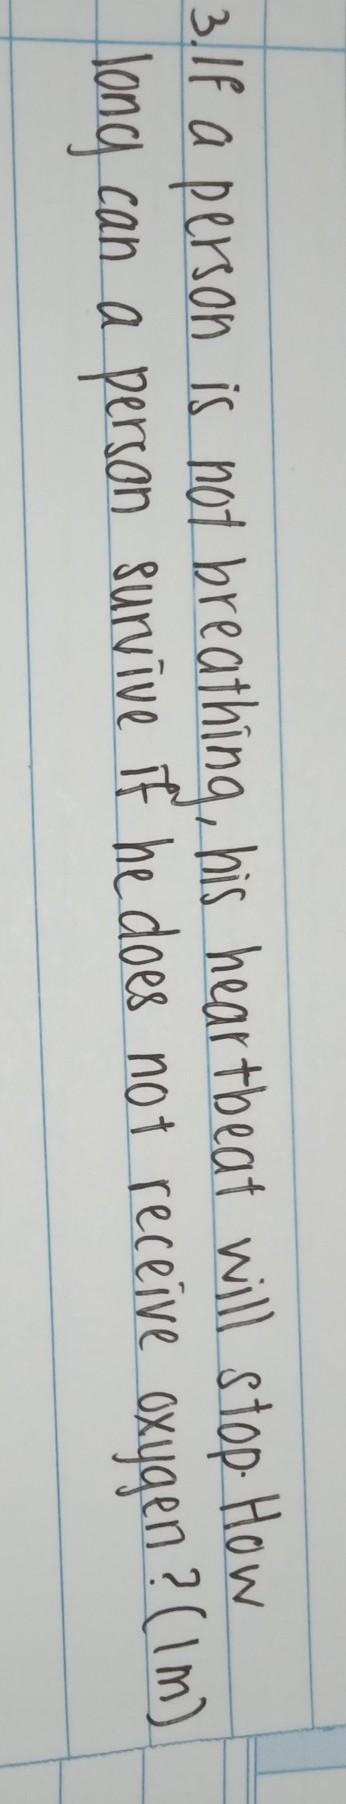 3. If a person is not breathing, his heartbeat will stop. How
long can a person survive if he does not receive oxygen? (1m)